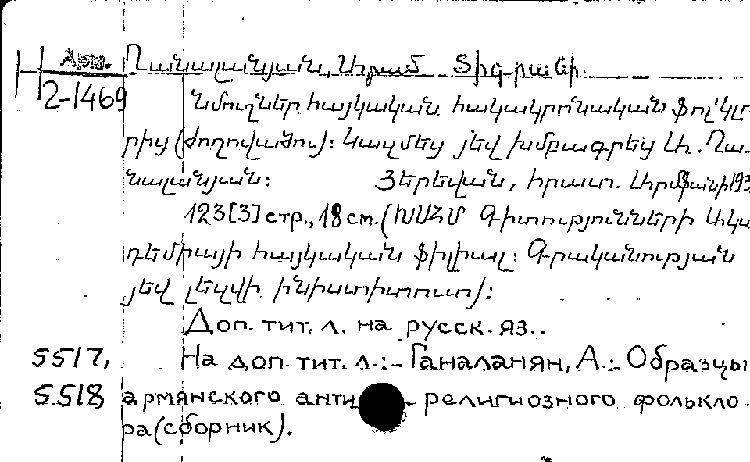 Арм. Ղանալանյան, Արամ Տիգրանի.
2-1469 Նմուշներ հայկական հակակրոնական ֆոլկլո
րից (ժողովածու): Կազմեց յեվ խմբագրեց Ա. Ղա-
նալանյան: Յերեվան, հրատ. Արմֆանի 193
123[3] стр., 18 см. (ԽՍՀՄ Գիտությունների Ակա
դեմիայի հայկական ֆիլիալ: Գրականության
յեվ լեզվի ինստիտուտ):
Доп. тит. л. на русск. яз..
5517, На доп. тит. л.:- Ганаланян, А.: Образцы
5518 армянского анти-религиозного фолькло
ра (сборник).